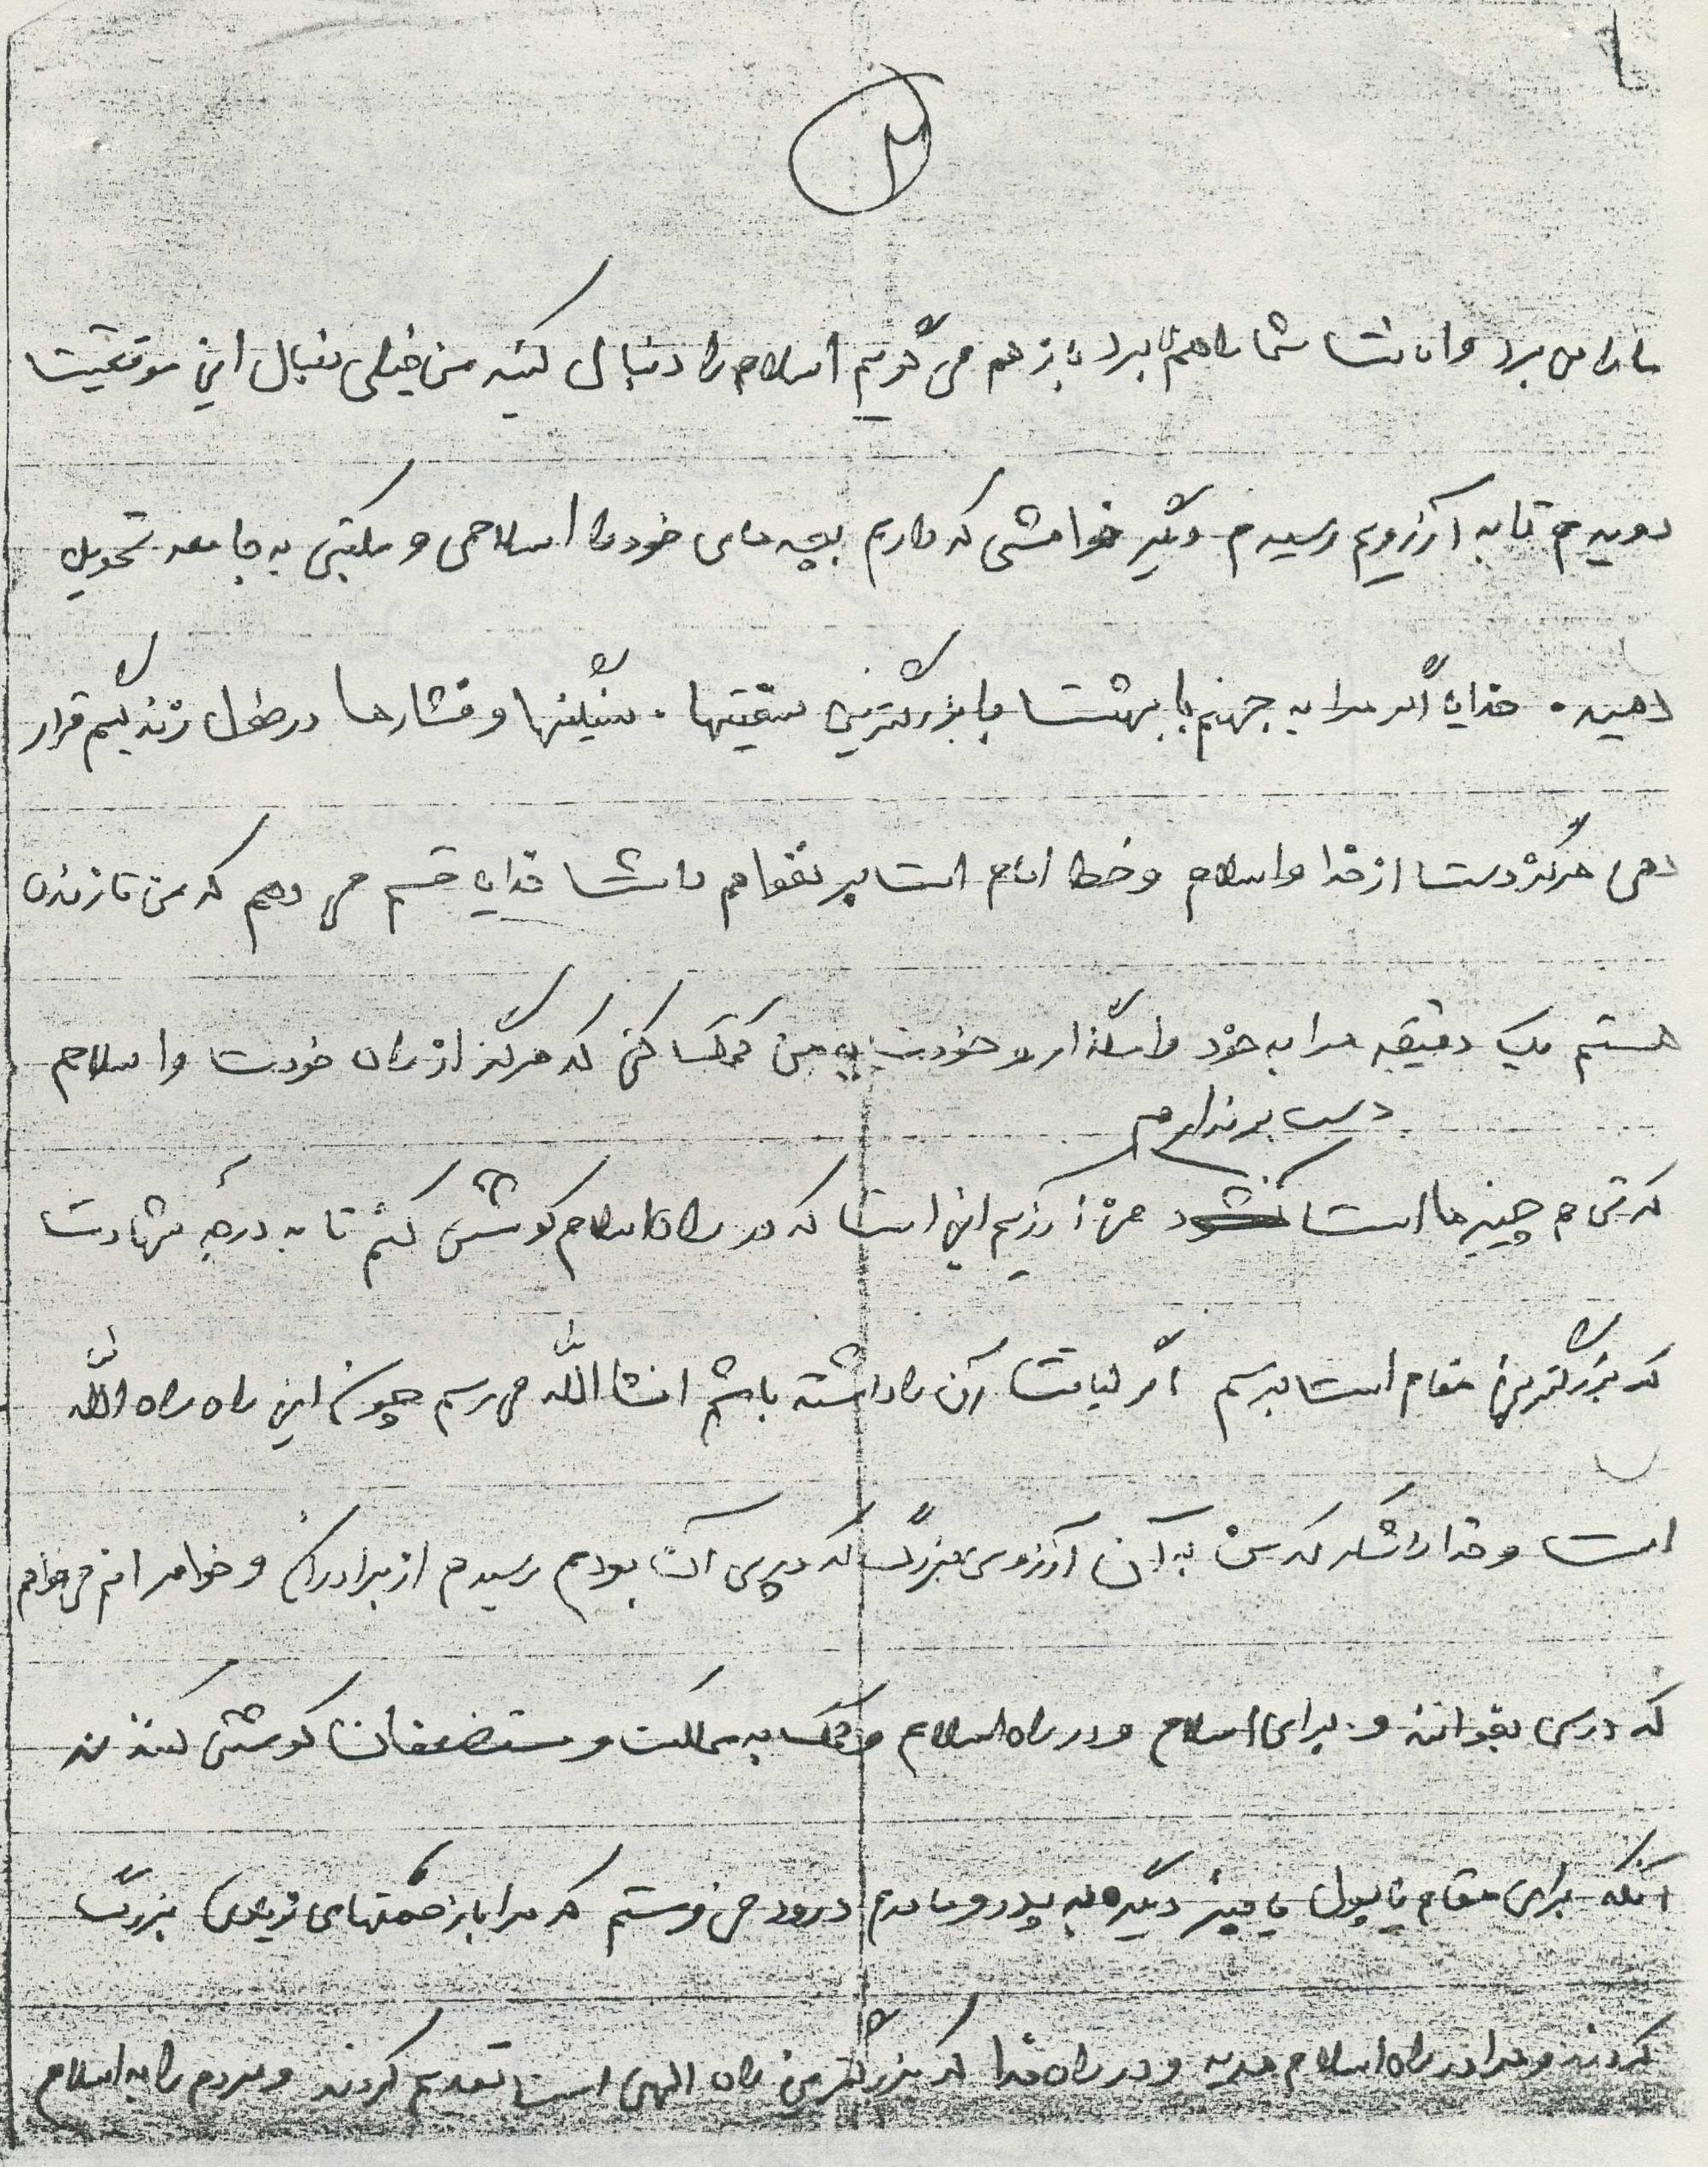 ۲
ما را می برد و امانت شما را هم برد باز هم می گویم اسلام را دنبال کنید من خیلی دنبال این موقعیت
دویدم تا به آرزویم رسیدم دیگر خواهشی که دارم بچه های خود را اسلامی و مکتبی به جامعه تحویل
دهید . خدایا اگر مرا به جهنم یا بهشت یا بزرگترین سختیها . سنگینها و فشارها در طول زندگیم قرار
دهی هرگز دست از خدا و اسلام و خط امام است بر نخواهم داشت خدایا قسم می دهم که من تا زنده
هستم یک دقیقه مرا به خود وامگذار و خودت به من کمک کنی که هرگز از راه خودت و اسلام
دست برندارم
که تمام چیزها است من آرزویم این است که در راه اسلام کوشش کنم تا به درجه شهادت
که بزرگترین مقام است برسم اگر لیاقت آن را داشته باشم انشاالله می رسم چون این راه راه الله
است و خدا را شکر که من به آن آرزوی بزرگ که در پی آن بودم رسیدم از برادران و خواهرانم می خواهم
که درس بخوانند و برای اسلام و در راه اسلام و کمک به مملکت و مستضعفان کوشش کنند نه
آنکه برای مقام یا پول یا چیز دیگر به پدر و مادرم درود می فرستم که مرا با زحمتهای زیادی بزرگ
کردند و مرا در راه اسلام هدیه و در راه خدا که بزرگترین راه الهی است تقدیم کردند و مردم را به اسلام